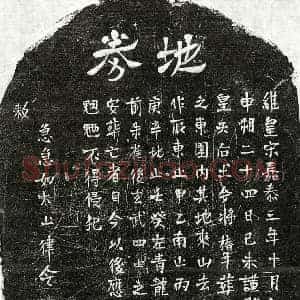 地券
維皇宋嘉泰三年十一月
申朔二十四日己未謹
皇天后土今將年葬
之東園内其地來山去
作艮東止甲乙南止丙
庚辛北止壬癸左青龍
前朱雀後玄武四止之
安葬亡者自今以後應
魍魎不得侵犯
急急如火山律令
敕